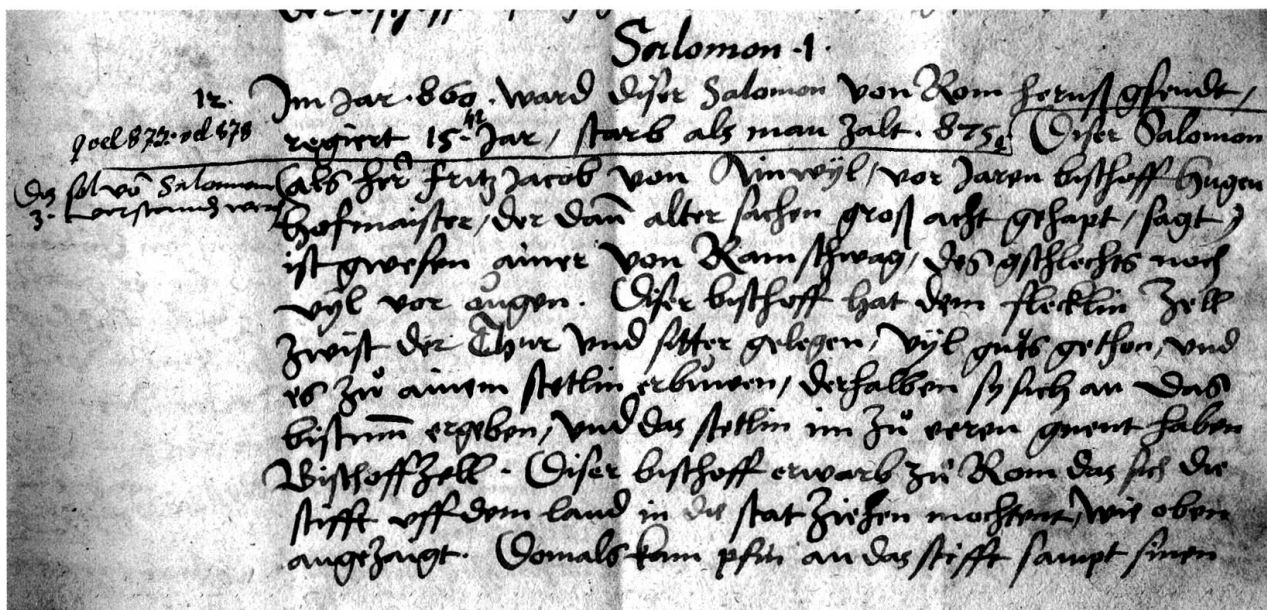 Salomon .1.
12. Im Jar .860. ward diser Salomon von Rom heruß gsendt /
vel 873. vel 878 regiert 15. Jar / starb als man zalt . 875 Diser Salomon
Das sol võ Salomon (als her Fritz Jacob von Ainwyl / vor Jaren bischoff Hugen
3. verstanden werden hofmaister / der dañ alter sachen groß acht gehapt / sagt)
ist gwesen ainer von Ramschwag / des gschlechts noch
vyl vor ougen . Diser bischoff hat dem flecklin Zell
zwist der Thur vnd sitter gelegen / vyl guͦts gethon / vnd
es zuͦ ainem stetlin erbuwen / derhalben sy sich an das
bistum̃ ergeben / vnd das stetlin im zuͦ eeren gnent haben
Bischoffzell . Diser bischoff erwarb zuͦ Rom das sich die
stifft vff dem land in die stat ziehen mochtent / wie oben
angezaigt . Domals kam pfin an das stifft sampt sinen